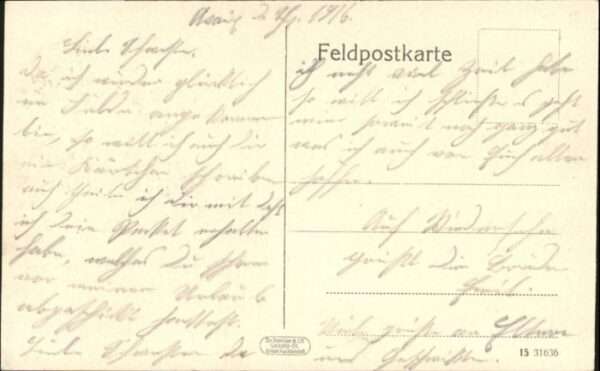 1916.
Liebe Schwester.
Da ich wieder glücklich
im Felde angekommen
bin, so will ich auch dir
ein Kärtchen schreiben
auch theile ich dir mit daß
ich dein Packet erhalten
habe, welches du schon
vor meinem Urlaub
abgeschickt hattest.
Liebe Schwester da
Feldpostkarte
ich nicht viel Zeit habe
so will ich schließen es geht
mir soweit noch ganz gut
was ich auch von Euch allen
hoffe.
Auf Wiedersehn
grüßt dein Bruder
Viele Grüße an Eltern
und Geschwister.
15 31636